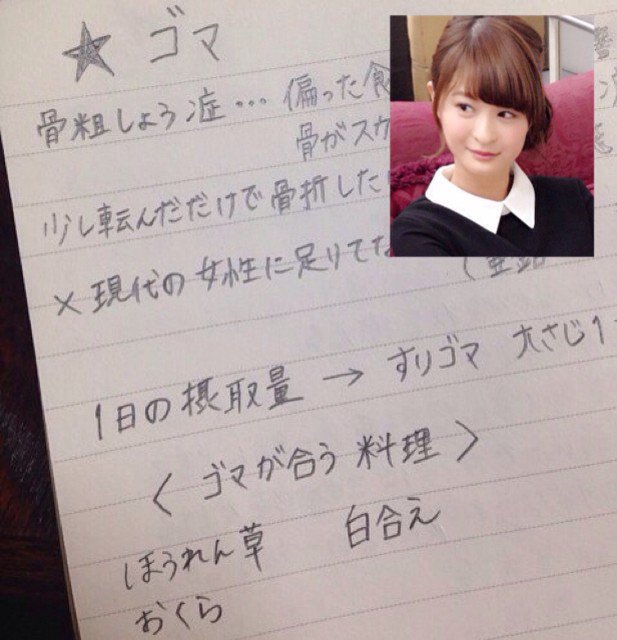 ★ ゴマ
骨粗しょう症… 偏った食
骨がスカ
少し転んだだけで骨折した
×現代の女性に足りてな
(亜鉛
1日の摂取量 → すりゴマ 大さじ1
〈 ゴマが合う 料理 〉
ほうれん草 白合え
おくら